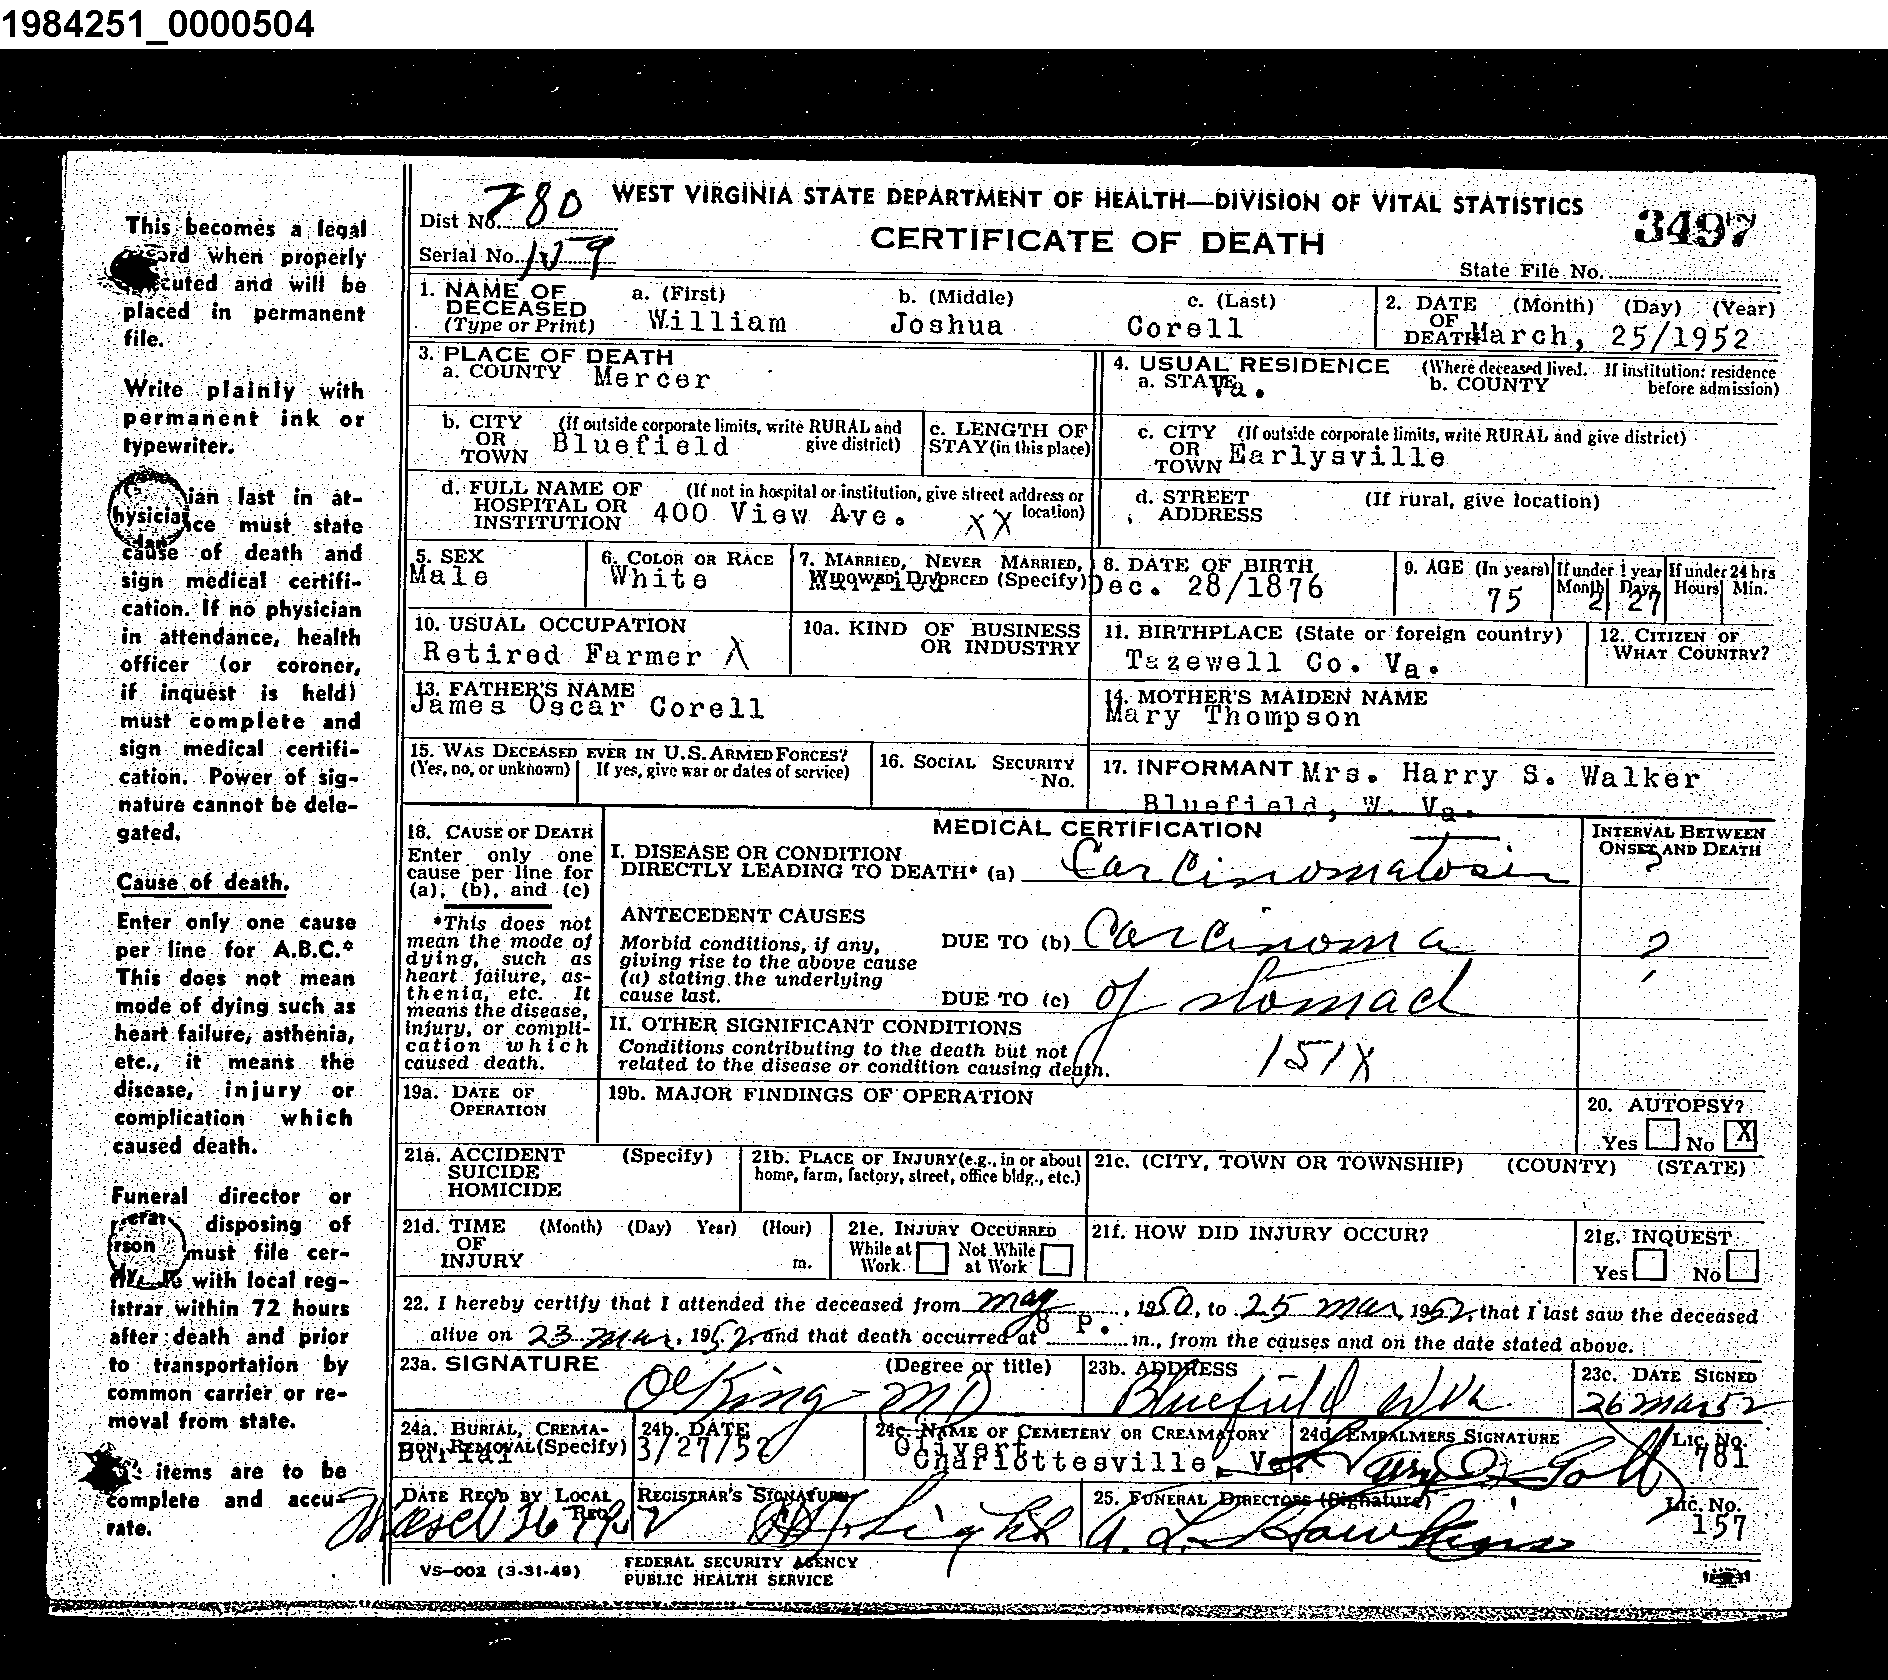 1984251_0000504
This becomes a legal
when properly
and will be
placed in permanent
file.
Write plainly with
permanent ink or
typewriter.
last in at-
must state
cause of death and
sign medical certifi-
cation. If no physician
in attendance, health
officer (or coroner,
if inquest is held)
must complete and
sign medical certifi-
cation. Power of sig-
nature cannot be dele-
gated.
Cause of death.
Enter only one cause
per line for A.B.C.*
This does not mean
mode of dying such as
heart failure, asthenia,
etc., it means the
disease, injury or
complication which
caused death.
Funeral director or
disposing of
must file cer-
with local reg-
istrar within 72 hours
after death and prior
to transportation by
common carrier or re-
moval from state.
items are to be
complete and accu-
rate.
Dist No. 780
WEST VIRGINIA STATE DEPARTMENT OF HEALTH—DIVISION OF VITAL STATISTICS
3497
Serial No. 159
CERTIFICATE OF DEATH
State File No.
1. NAME OF DECEASED (Type or Print) a. (First) William b. (Middle) Joshua c. (Last) Corell
2. DATE OF DEATH (Month) (Day) (Year) March, 25/1952
3. PLACE OF DEATH
a. COUNTY Mercer
4. USUAL RESIDENCE (Where deceased lived. If institution: residence before admission)
a. STATE Va. b. COUNTY
b. CITY OR TOWN (If outside corporate limits, write RURAL and give district) Bluefield
c. LENGTH OF STAY (in this place)
c. CITY OR TOWN (If outside corporate limits, write RURAL and give district) Earlysville
d. FULL NAME OF HOSPITAL OR INSTITUTION (If not in hospital or institution, give street address or location) 400 View Ave. XX
d. STREET ADDRESS (If rural, give location)
5. SEX Male
6. COLOR OR RACE White
7. MARRIED, NEVER MARRIED, WIDOWED, DIVORCED (Specify) Married
8. DATE OF BIRTH Dec. 28/1876
9. AGE (In years) 75 If under 1 year Months 2 Days 27 If under 24 hrs Hours Min.
10. USUAL OCCUPATION Retired Farmer X
10a. KIND OF BUSINESS OR INDUSTRY
11. BIRTHPLACE (State or foreign country) Tazewell Co. Va.
12. CITIZEN OF WHAT COUNTRY?
13. FATHER'S NAME James Oscar Corell
14. MOTHER'S MAIDEN NAME Mary Thompson
15. WAS DECEASED EVER IN U.S. ARMED FORCES?
(Yes, no, or unknown) If yes, give war or dates of service)
16. SOCIAL SECURITY No.
17. INFORMANT Mrs. Harry S. Walker
Bluefield, W. Va.
18. CAUSE OF DEATH
Enter only one
cause per line for
(a), (b), and (c)
*This does not
mean the mode of
dying, such as
heart failure, as-
thenia, etc. It
means the disease,
injury, or compli-
cation which
caused death.
MEDICAL CERTIFICATION
INTERVAL BETWEEN ONSET AND DEATH
I. DISEASE OR CONDITION
DIRECTLY LEADING TO DEATH* (a) Carcinomatosis ?
ANTECEDENT CAUSES
Morbid conditions, if any,
giving rise to the above cause
(a) stating the underlying
cause last.
DUE TO (b) Carcinoma ?
DUE TO (c) of stomach
II. OTHER SIGNIFICANT CONDITIONS
Conditions contributing to the death but not
related to the disease or condition causing death.
151X
19a. DATE OF OPERATION
19b. MAJOR FINDINGS OF OPERATION
20. AUTOPSY?
Yes No X
21a. ACCIDENT SUICIDE HOMICIDE (Specify)
21b. PLACE OF INJURY (e.g., in or about home, farm, factory, street, office bldg., etc.)
21c. (CITY, TOWN OR TOWNSHIP) (COUNTY) (STATE)
21d. TIME OF INJURY (Month) (Day) Year) (Hour) m.
21e. INJURY OCCURRED
While at Work Not While at Work
21f. HOW DID INJURY OCCUR?
21g. INQUEST
Yes No
22. I hereby certify that I attended the deceased from May, 1950, to 25 Mar, 1952, that I last saw the deceased
alive on 23 Mar, 1952, and that death occurred at 8 P. m., from the causes and on the date stated above.
23a. SIGNATURE (Degree or title) King MD
23b. ADDRESS Bluefield W Va
23c. DATE SIGNED 26 Mar 52
24a. BURIAL, CREMATION, REMOVAL (Specify) Burial
24b. DATE 3/27/52
24c. NAME OF CEMETERY OR CREAMATORY Olivert
Charlottesville, Va.
24d. EMBALMERS SIGNATURE Lic. No. 781
DATE REC'D BY LOCAL REG.
REGISTRAR'S SIGNATURE
25. FUNERAL DIRECTORS (Signature) A. L. Hawkins Lic. No. 157
VS-002 (3-31-49)
FEDERAL SECURITY AGENCY
PUBLIC HEALTH SERVICE